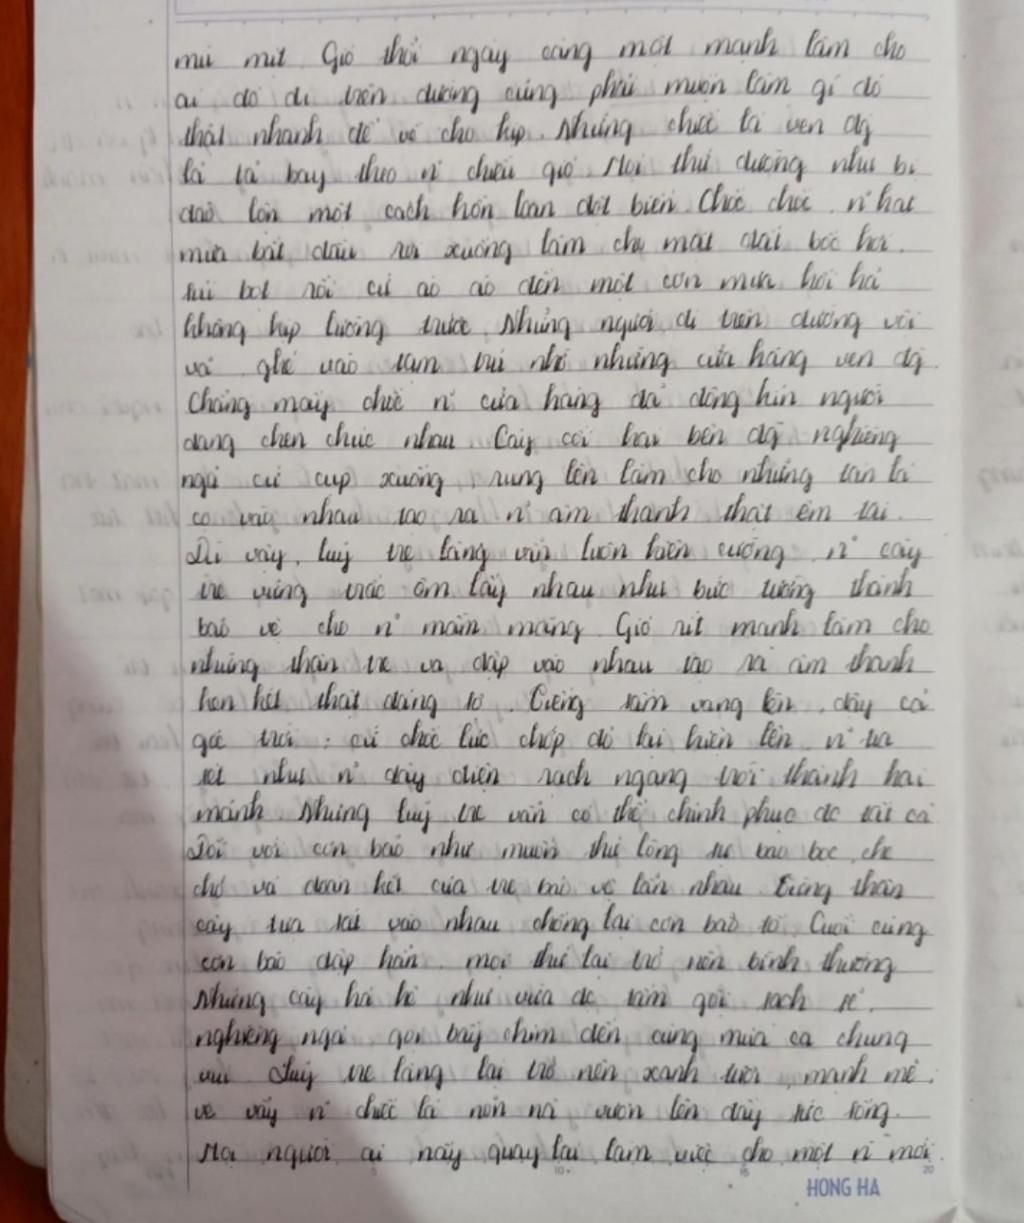 mù mịt. Gió thổi ngày càng một mạnh làm cho
ai đó đi trên đường cũng phải muốn làm gì đó
thật nhanh để về cho kịp. Những chiếc lá ven đg
lả tả bay theo n~ chiều gió. Mọi thứ dường như bị
đảo lộn một cách hỗn loạn đột biến. Chốc chốc, n~ hạt
mưa bắt đầu rơi xuống làm cho mặt đất bốc hơi
bột rồi cứ ào ào đến một cơn mưa hối hả
không kịp lường trước. Những người đi trên đường vội
vã ghé vào tạm trú nhờ những cửa hàng ven đg.
Chẳng mấy chốc n~ cửa hàng đã đông kín người
đang chen chúc nhau. Cây cối hai bên đg nghiêng
ngả cứ cụp xuống, rung lên làm cho những tán lá
cọ vào nhau tạo ra n~ âm thanh thật êm tai.
Dù vậy, luỹ tre làng vẫn luôn kiên cường, n~ cây
tre vững trắc ôm lấy nhau như bức tường thành
bảo vệ cho n~ mầm măng. Gió rít mạnh làm cho
những thân tre va đập vào nhau tạo ra âm thanh
ken két thật đáng sợ. Tiếng sấm vang lên, dậy cả
góc trời, cứ chốc lúc chớp đó lại hiện lên n~ tia
sét như n~ dây điện rạch ngang trời thành hai
mảnh. Nhưng luỹ tre vẫn có thể chinh phục đc tất cả
Đối với cơn bão như muôn thử lòng sự bao bọc, che
chở và đoàn kết của tre bảo vệ lẫn nhau. Từng thân
cây tựa sát vào nhau chống lại cơn bão tố. Cuối cùng
cơn bão dập hẳn, mọi thứ lại trở nên bình thường
Những cây hả hê như vừa đc tắm gội sạch sẽ,
nghiêng ngả gọi bầy chim đến cùng múa ca chung
vui. Luỹ tre làng lại trở nên xanh tươi, mạnh mẽ,
ve vẩy n~ chiếc lá nõn nà vươn lên đầy sức sống.
Mọi người ai nấy quay lại làm việc cho một n~ mới.
HONG HA